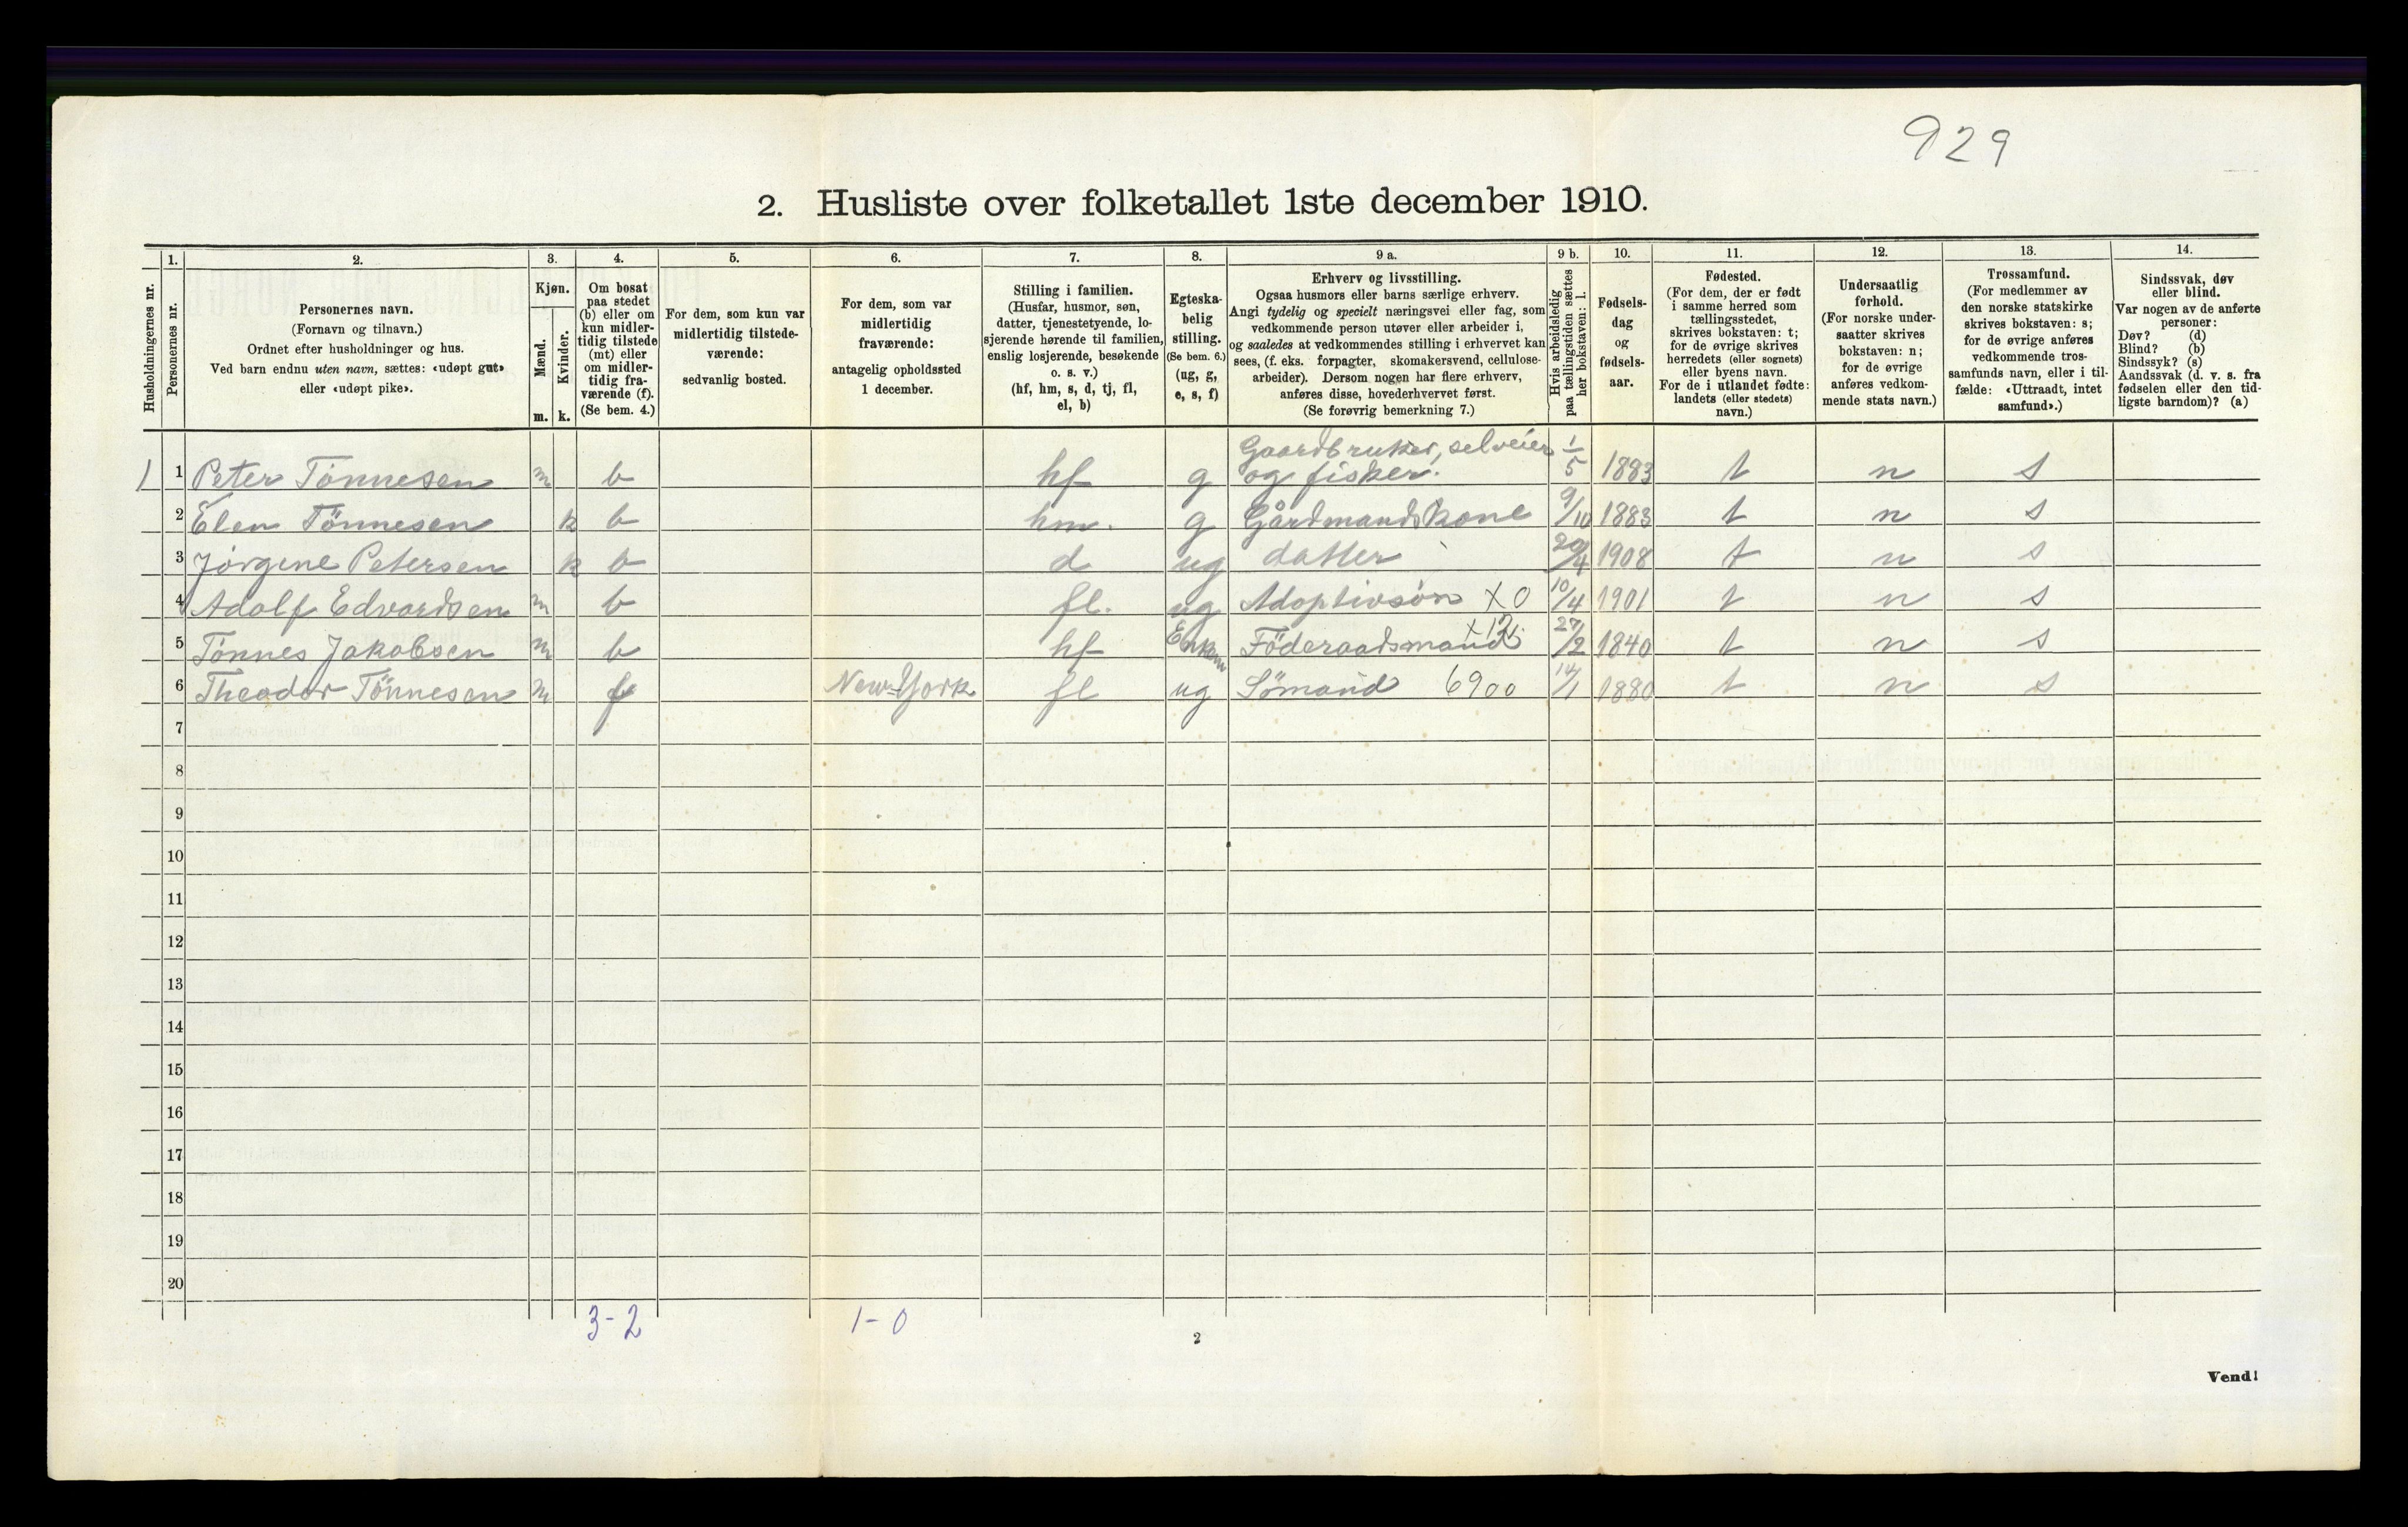 929
2. Husliste over folketallet 1ste december 1910.
Husholdningernes nr.
1.
Personernes nr.
2.
Personernes navn.
(Fornavn og tilnavn.)
Ordnet efter husholdninger og hus.
Ved barn endnu uten navn, sættes: «udøpt gut»
eller «udøpt pike».
3.
Kjøn.
Mænd.
Kvinder.
m. k.
4.
Om bosat
paa stedet
(b) eller om
kun midler-
tidig tilstede
(mt) eller
om midler-
tidig fra-
værende (f).
(Se bem. 4.)
5.
For dem, som kun var
midlertidig tilstede-
værende:
sedvanlig bosted.
6.
For dem, som var
midlertidig
fraværende:
antagelig opholdssted
1 december.
7.
Stilling i familien.
(Husfar, husmor, søn,
datter, tjenestetyende, lo-
sjerende hørende til familien,
enslig losjerende, besøkende
o. s. v.)
(hf, hm, s, d, tj, fl,
el, b)
8.
Egteska-
belig
stilling.
(Se bem. 6.)
(ug, g,
e, s, f)
9 a.
Erhverv og livsstilling.
Ogsaa husmors eller barns særlige erhverv.
Angi tydelig og specielt næringsvei eller fag, som
vedkommende person utøver eller arbeider i,
og saaledes at vedkommendes stilling i erhvervet kan
sees, (f. eks. forpagter, skomakersvend, cellulose-
arbeider). Dersom nogen har flere erhverv,
anføres disse, hovederhvervet først.
(Se forøvrig bemerkning 7.)
9 b.
Hvis arbeidsledig
paa tællingstiden sættes
her bokstaven: l.
10.
Fødsels-
dag
og
fødsels-
aar.
11.
Fødested.
(For dem, der er født
i samme herred som
tællingsstedet,
skrives bokstaven: t;
for de øvrige skrives
herredets (eller sognets)
eller byens navn.
For de i utlandet fødte:
landets (eller stedets)
navn.)
12.
Undersaatlig
forhold.
(For norske under-
saatter skrives
bokstaven: n;
for de øvrige
anføres vedkom-
mende stats navn.)
13.
Trossamfund.
(For medlemmer av
den norske statskirke
skrives bokstaven: s;
for de øvrige anføres
vedkommende tros-
samfunds navn, eller i til-
fælde: «Uttraadt, intet
samfund».)
14.
Sindssvak, døv
eller blind.
Var nogen av de anførte
personer:
Døv? (d)
Blind? (b)
Sindssyk? (s)
Aandssvak (d. v. s. fra
fødselen eller den tid-
ligste barndom)? (a)
1 1 Peter Tønnesen m b hf g Gaardbruker, selveier og fisker. 1/5 1883 t n s
2 Elen Tönnesen k b hm. g Gårdmandskone 9/10 1883 t n s
3 Jörgine Petersen k b d ug datter 20/4 1908 t n s
4 Adolf Edvardsen m b fl. ug Adoptivsön X 0 10/4 1901 t n s
5 Tönnes Jakobsen m b hf Enkem Föderaadsmand 27/2 1840 t n s
6 Theodor Tönnesen m f New-York fl ug Sömand 6900 14/1 1880 t n s
7
8
9
10
11
12
13
14
15
16
17
18
19
20
3-2 1-0
2
Vend!